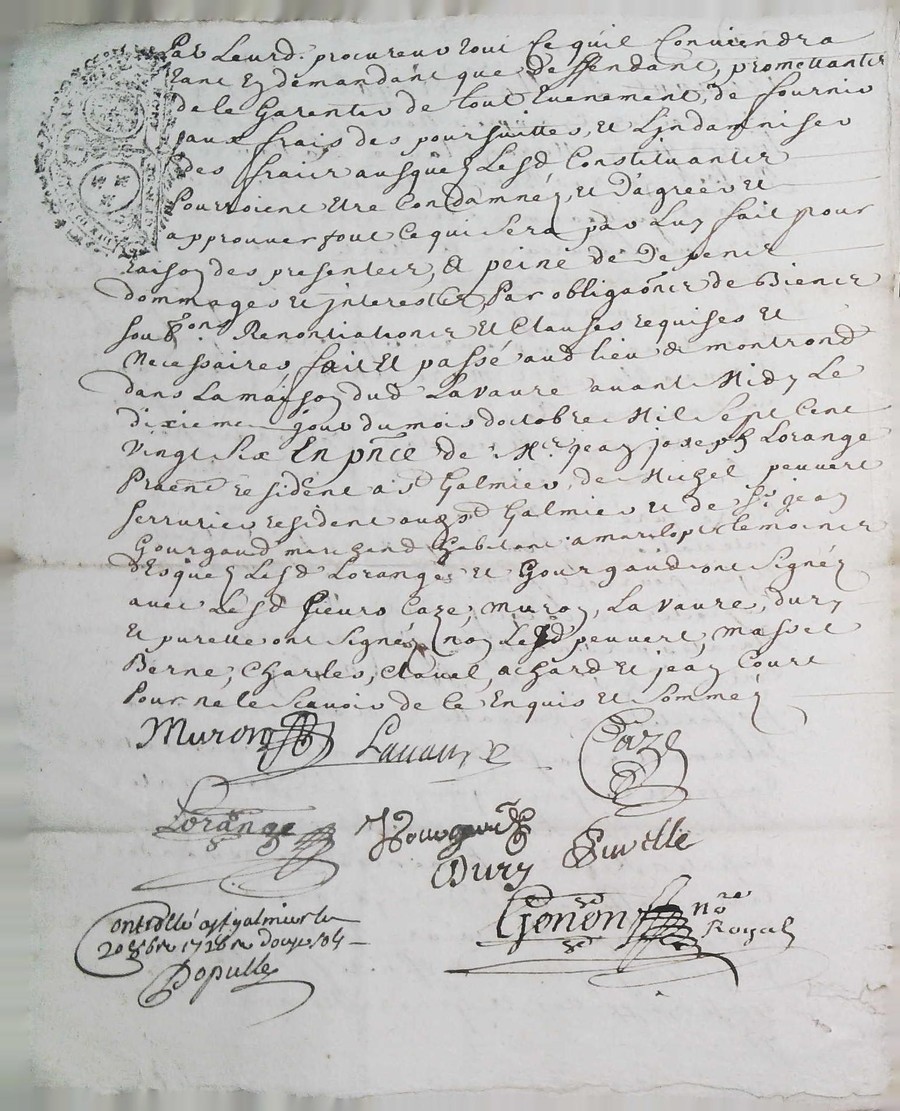 Par Leurd. procureur tout Ce quil Conviendra
tant En demandant que deffendant, promettantes
de le Garentir de tout Evenement, de fournir
aux frais des poursuittes, et Lindamniser
des fraix ausquez Lesd Constituantes
Pourroient Etre Condamnéz, et d'agreer et
approuver tout Ce qui Sera par Luy fait pour
raison des presentes, A peine de Depens
dommages et interestes, Par obligaōns de Biens
soubsōns Renontiations et Clauses requises et
Necessaires fait et passé aud lieu de montrond
dans La maison dud Lavaure avant Midy Le
dixieme jour du mois doctobre Mil Sept Cent
Vingt Six En pn̄ce de Mr. jean joseph Lorange
resident a st Galmier, de Michel peuvert
serrurier resident aud sd Galmier et de Sr jean
Gourgaud marchand habitant a marclopt temoins
desquez Lesd Lorange et Gourgaud ont Signéz
avec Lesd Sieurs Caze, muron, Lavaure, dury
Et purelle ont Signéz, non Lesd peuvert, massoet
Berne, Charles, Claval, achard et jean Court
Pour ne le Scavoir de ce Enquis et Sommez
Muron Lavaure Caze
Lorange Gourgaud
Dury Purelle
Gonon nore
Royal
Controllé a st galmier le
20 8bre 1726 re douze sols
Dopulle